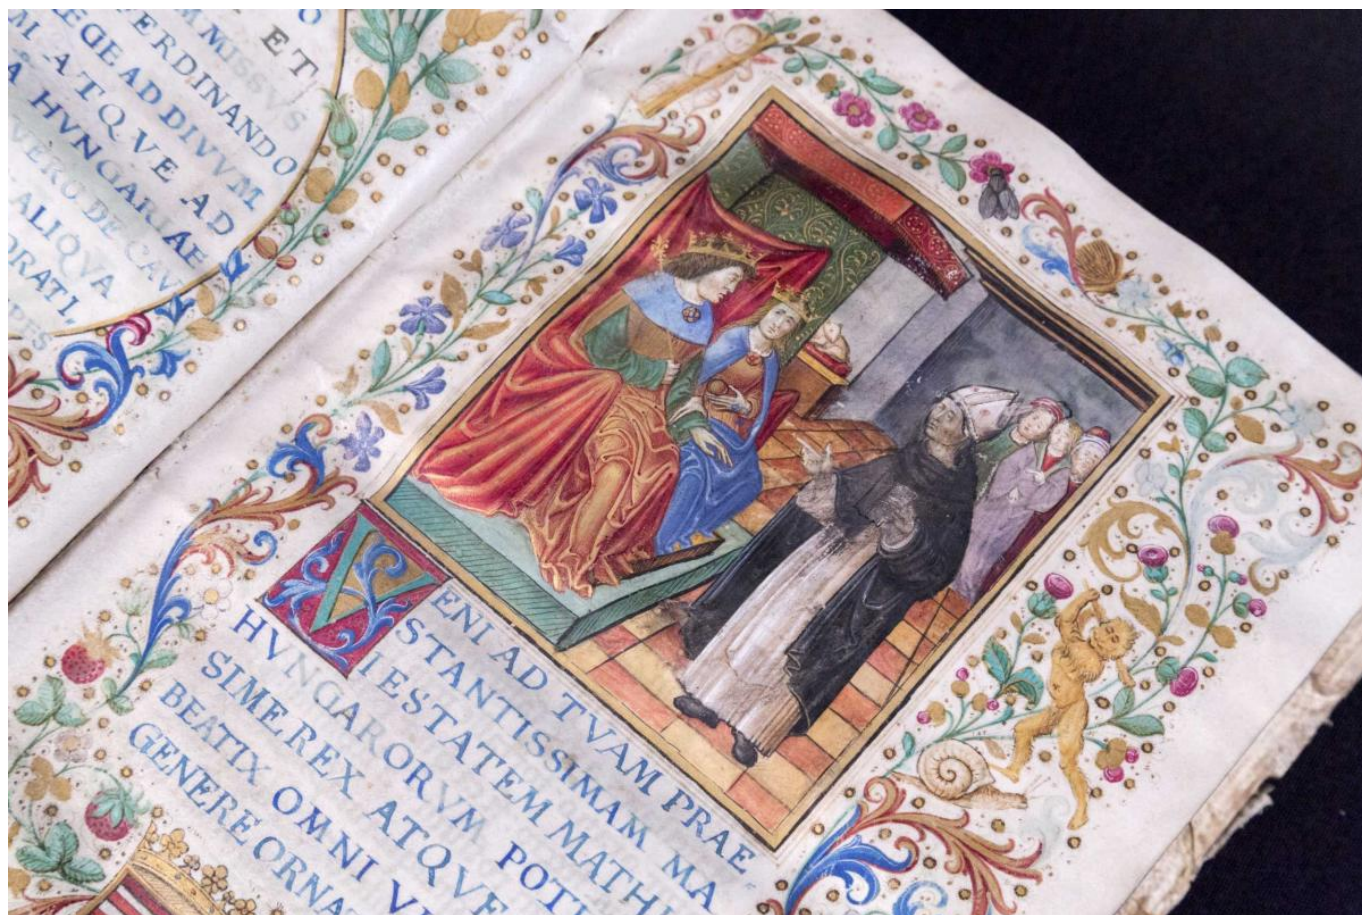 ET
MISSVS
FERDINANDO
AD DIVVM
ATQVE AD
HVNGARIAE
VERO DE CAV
ALIQVA
RATI,
VENI AD TVAM PRAE
STANTISSIMAM MA
IESTATEM MATHI
HVNGARORVM POT
SIME REX ATQVE
BEATIX OMNI VI
GENERE ORNA